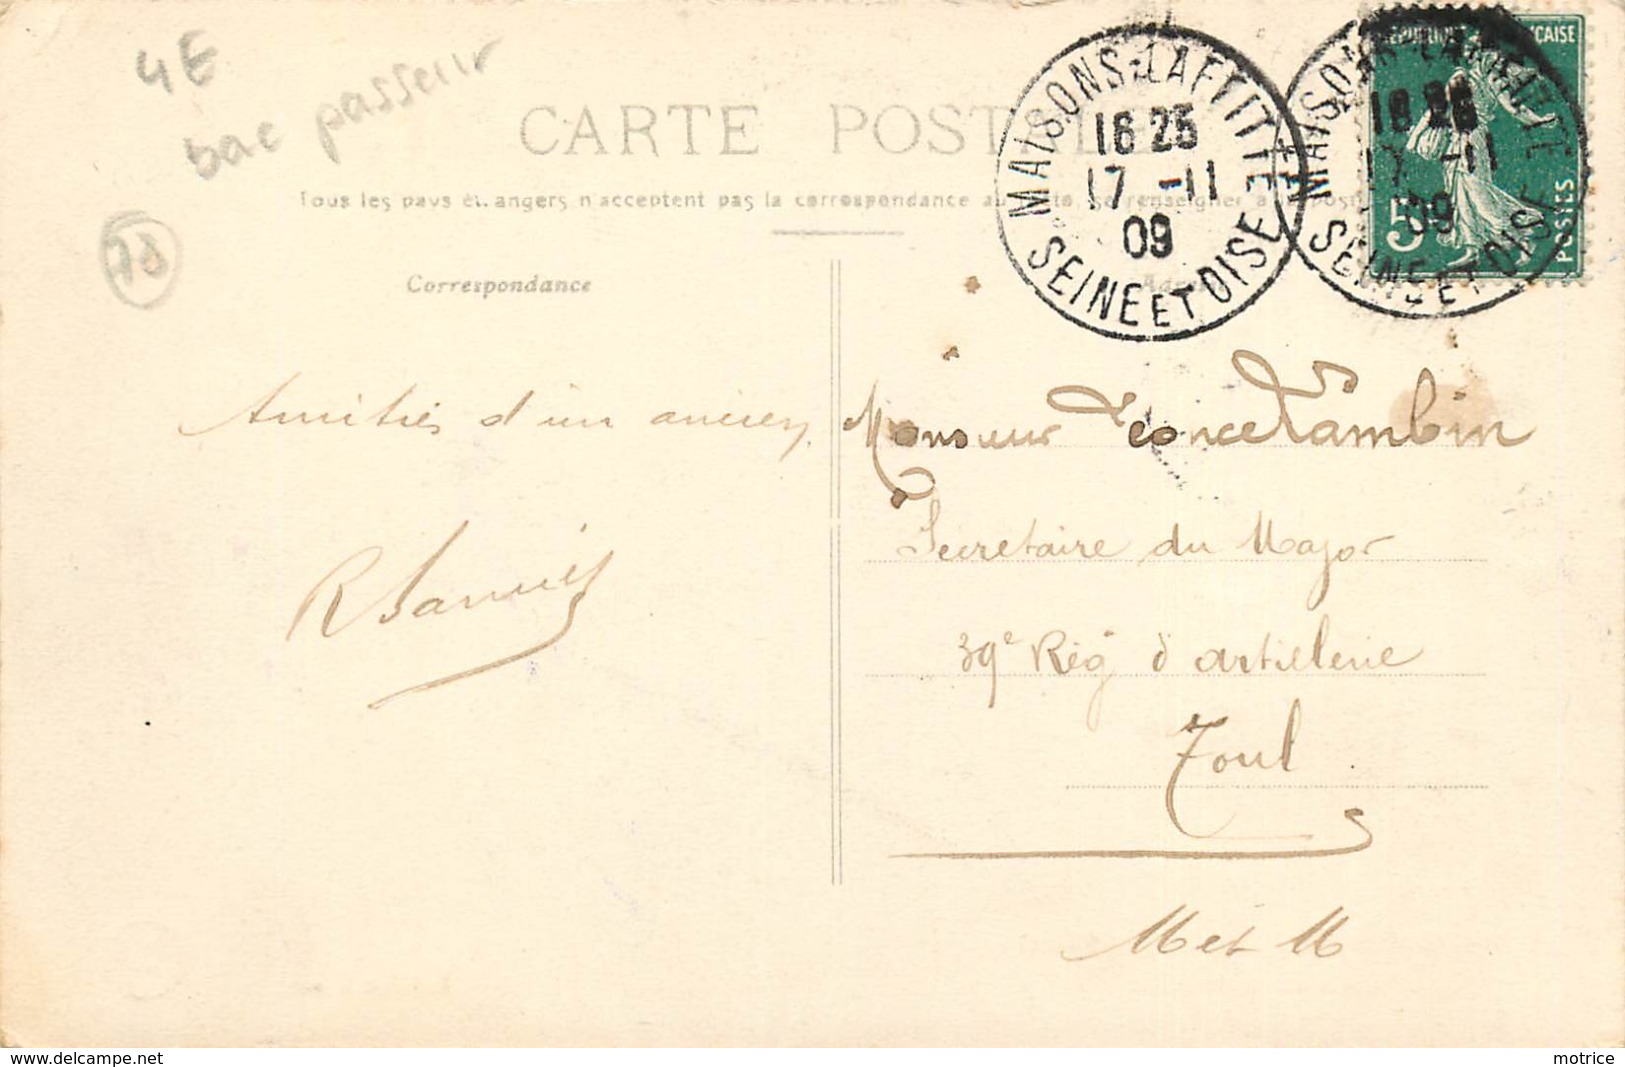 4E
bac passeur
78
CARTE POSTALE
Tous les pays étrangers n'acceptent pas la correspondance au
MAISONS-LAFFITTE
16 25
17 -11
09
SEINE ET OISE
MAISONS-LAFFITTE
17 -11
09
SEINE ET OISE
REPUBLIQUE FRANÇAISE
5
POSTES
Correspondance
Amitiés d'un ancien
Monsieur Leonce Lambin
Secretaire du Major
39e Rég d'artillerie
Toul
M et M
www.delcampe.net
motrice